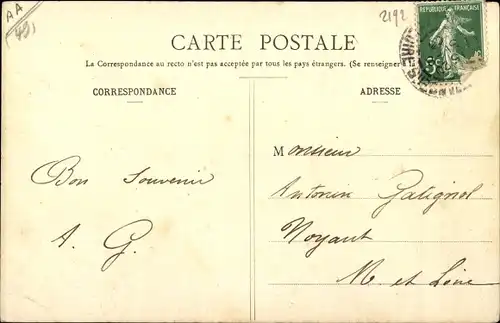 AA
(49)
2192
REPUBLIQUE FRANÇAISE
CARTE POSTALE
La Correspondance au recto n'est pas acceptée par tous les pays étrangers. (Se renseigner
CORRESPONDANCE
ADRESSE
Bon Souvenir
A. G.
Monsieur
Antonin Galignol
Noyant
M. et Loire